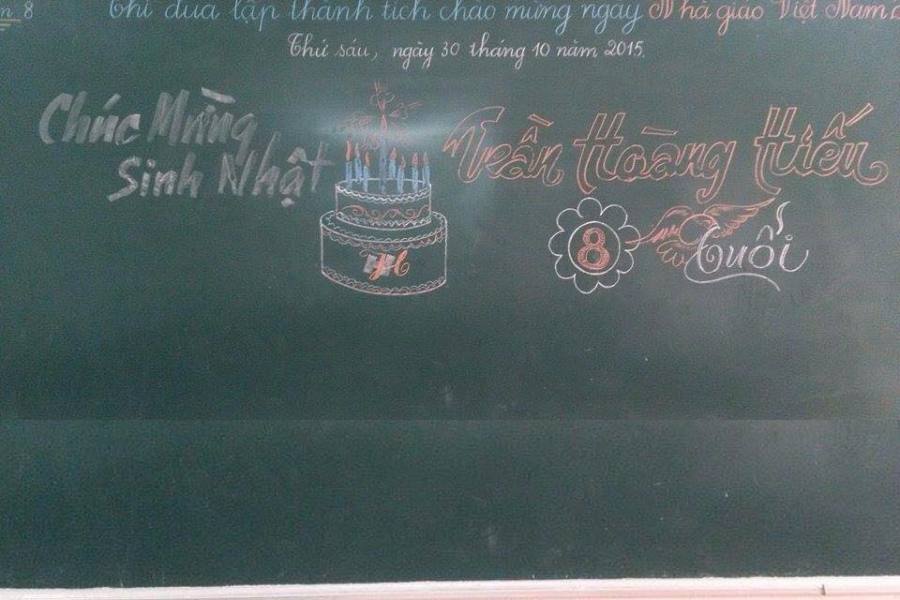 8
Thi đua lập thành tích chào mừng ngày Nhà giáo Việt Nam
Thứ sáu, ngày 30 tháng 10 năm 2015.
Chúc Mừng
Sinh Nhật
Trần Hoàng Hiếu
8 Tuổi